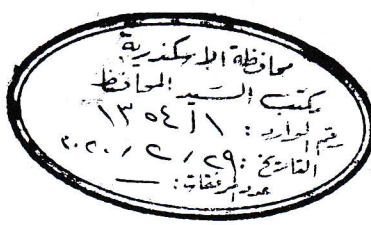 محافظة الإسكندرية
مكتب السيد المحافظ
رقم الوارد : ١٣٥٤١
التاريخ : ٢٩ / ٢ / ٢٠٢٠
عدد المرفقات : —